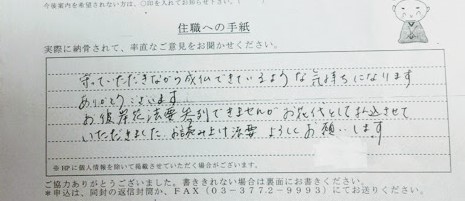 今後案内を希望されない方は、〇印を入れてお知らせ下さい。
住職への手紙
実際に納骨されて、率直なご意見をお聞かせください。
守っていただきながら成仏できているような気持ちになります
ありがとうございます
お彼岸花法要参列できませんがお花代として振込させて
いただきました お読み上げ法要 よろしくお願いします
※HPに個人情報を除いて掲載させていただく場合がございます。
ご協力ありがとうございました。書ききれない場合は裏面にお書きください。
*申込は、同封の返信封筒か、FAX(03-3772-9993)にてお送りください。